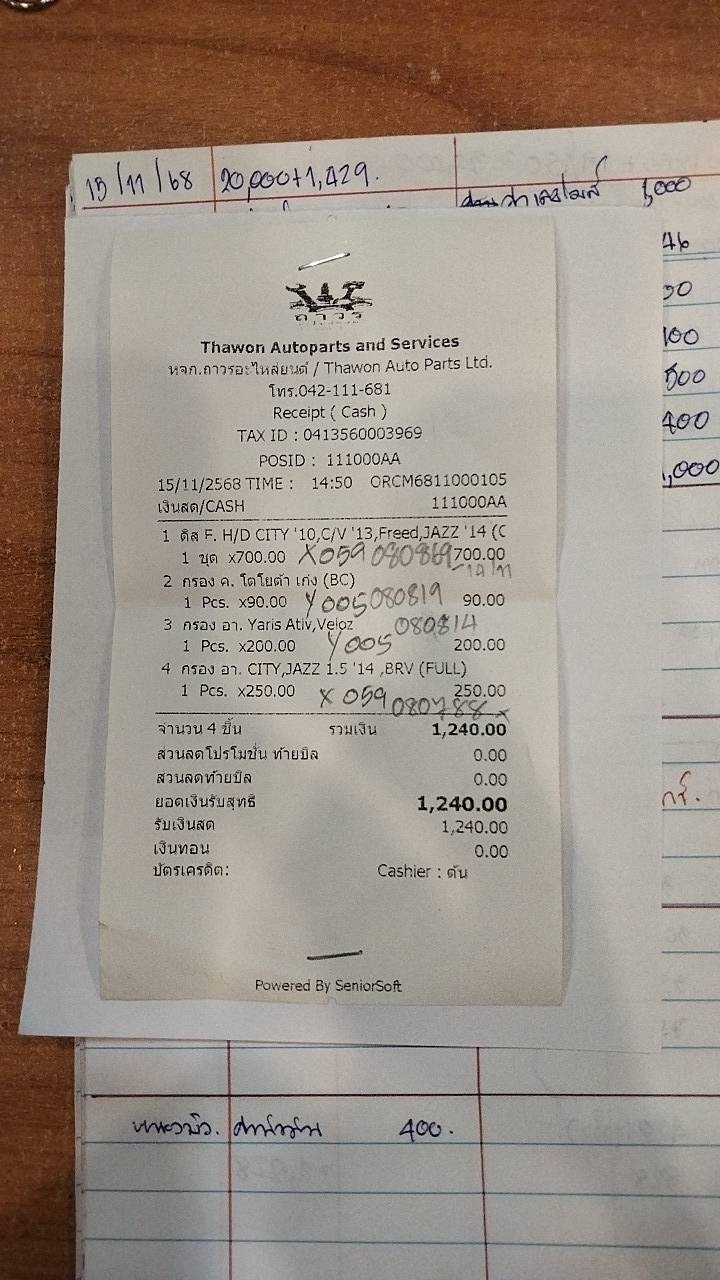 15/11/68 20,000+1,429.
1,000
46
00
100
500
400
1,000
ถาวร
Thawon Autoparts and Services
หจก.ถาวรอะไหล่ยนต์ / Thawon Auto Parts Ltd.
โทร.042-111-681
Receipt ( Cash )
TAX ID : 0413560003969
POSID : 111000AA
15/11/2568 TIME : 14:50 ORCM6811000105
เงินสด/CASH 111000AA
1 ดิส F. H/D CITY '10,C/V '13,Freed,JAZZ '14 (C
1 ชุด x700.00 X059 080869 700.00
2 กรอง ค. โตโยต้า เก๋ง (BC)
1 Pcs. x90.00 Y005 080819 90.00
3 กรอง อา. Yaris Ativ,Veloz 080814
1 Pcs. x200.00 Y005 200.00
4 กรอง อา. CITY,JAZZ 1.5 '14 ,BRV (FULL)
1 Pcs. x250.00 X 059 080788 250.00
จำนวน 4 ชิ้น รวมเงิน 1,240.00
ส่วนลดโปรโมชั่น ท้ายบิล 0.00
ส่วนลดท้ายบิล 0.00
ยอดเงินรับสุทธิ 1,240.00
รับเงินสด 1,240.00
เงินทอน 0.00
บัตรเครดิต: Cashier : ต้น
Powered By SeniorSoft
400.